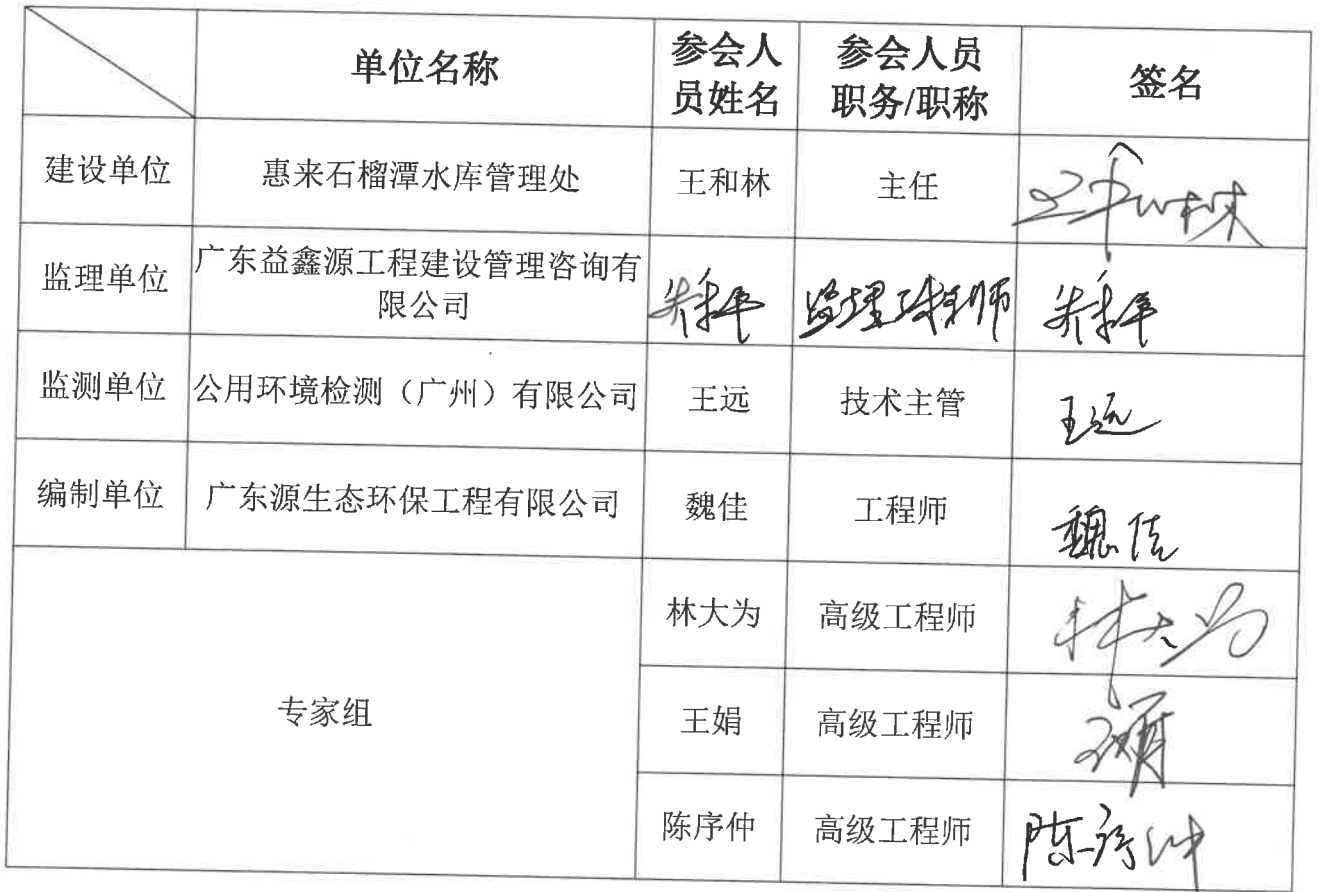 单位名称
参会人
员姓名
参会人员
职务/职称
签名
建设单位
惠来石榴潭水库管理处
王和林
主任
王和林
监理单位
广东益鑫源工程建设管理咨询有
限公司
监理工程师
监测单位
公用环境检测（广州）有限公司
王远
技术主管
王远
编制单位
广东源生态环保工程有限公司
魏佳
工程师
魏佳
专家组
林大为
高级工程师
林大为
王娟
高级工程师
王娟
陈序仲
高级工程师
陈序仲